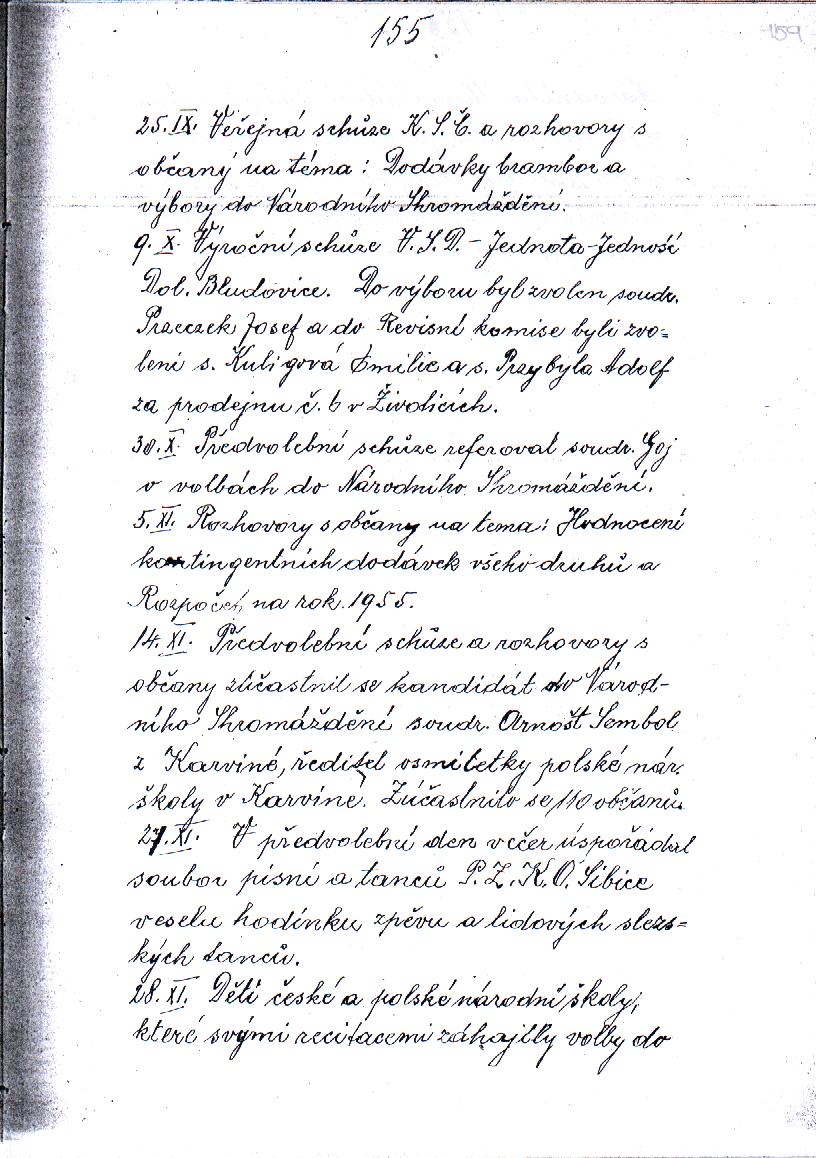 155
159
25. IX. Veřejná schůze K. S. Č. a rozhovory s
občany na téma: Dodávky brambor a
výbory do Národního Shromáždění.
9. X. Výroční schůze V. S. D. - Jednota-Jedność
Dol. Bludovice. Do výboru byl zvolen soudr.
Przeczek Josef a do Revisní komise byli zvo=
leni s. Kuligová Emilie a s. Przybyla Adolf
za prodejnu č. 6 v Životicích.
30. X. Předvolební schůze referoval soudr. Goj
o volbách do Národního Shromáždění.
5. XI. Rozhovory s občany na tema: Hodnocení
kontingentních dodávek všeho druhů a
Rozpočet, na rok 1955.
14. XI. Předvolební schůze a rozhovory s
občany zúčastnil se kandidát do Národ-
ního Shromáždění soudr. Arnošt Sembol
z Karviné, ředitel osmiletky polské nár.
školy v Karviné. Zúčastnilo se 110 občanů.
27. XI. V předvolební den večer uspořádal
soubor písní a tanců P. Z. K. O. Sibice
veselu hodínku zpěvu a lidových slezs=
kých tanců.
28. XI. Děti české a polské národní školy,
které svými recitacemi záhajily volby do